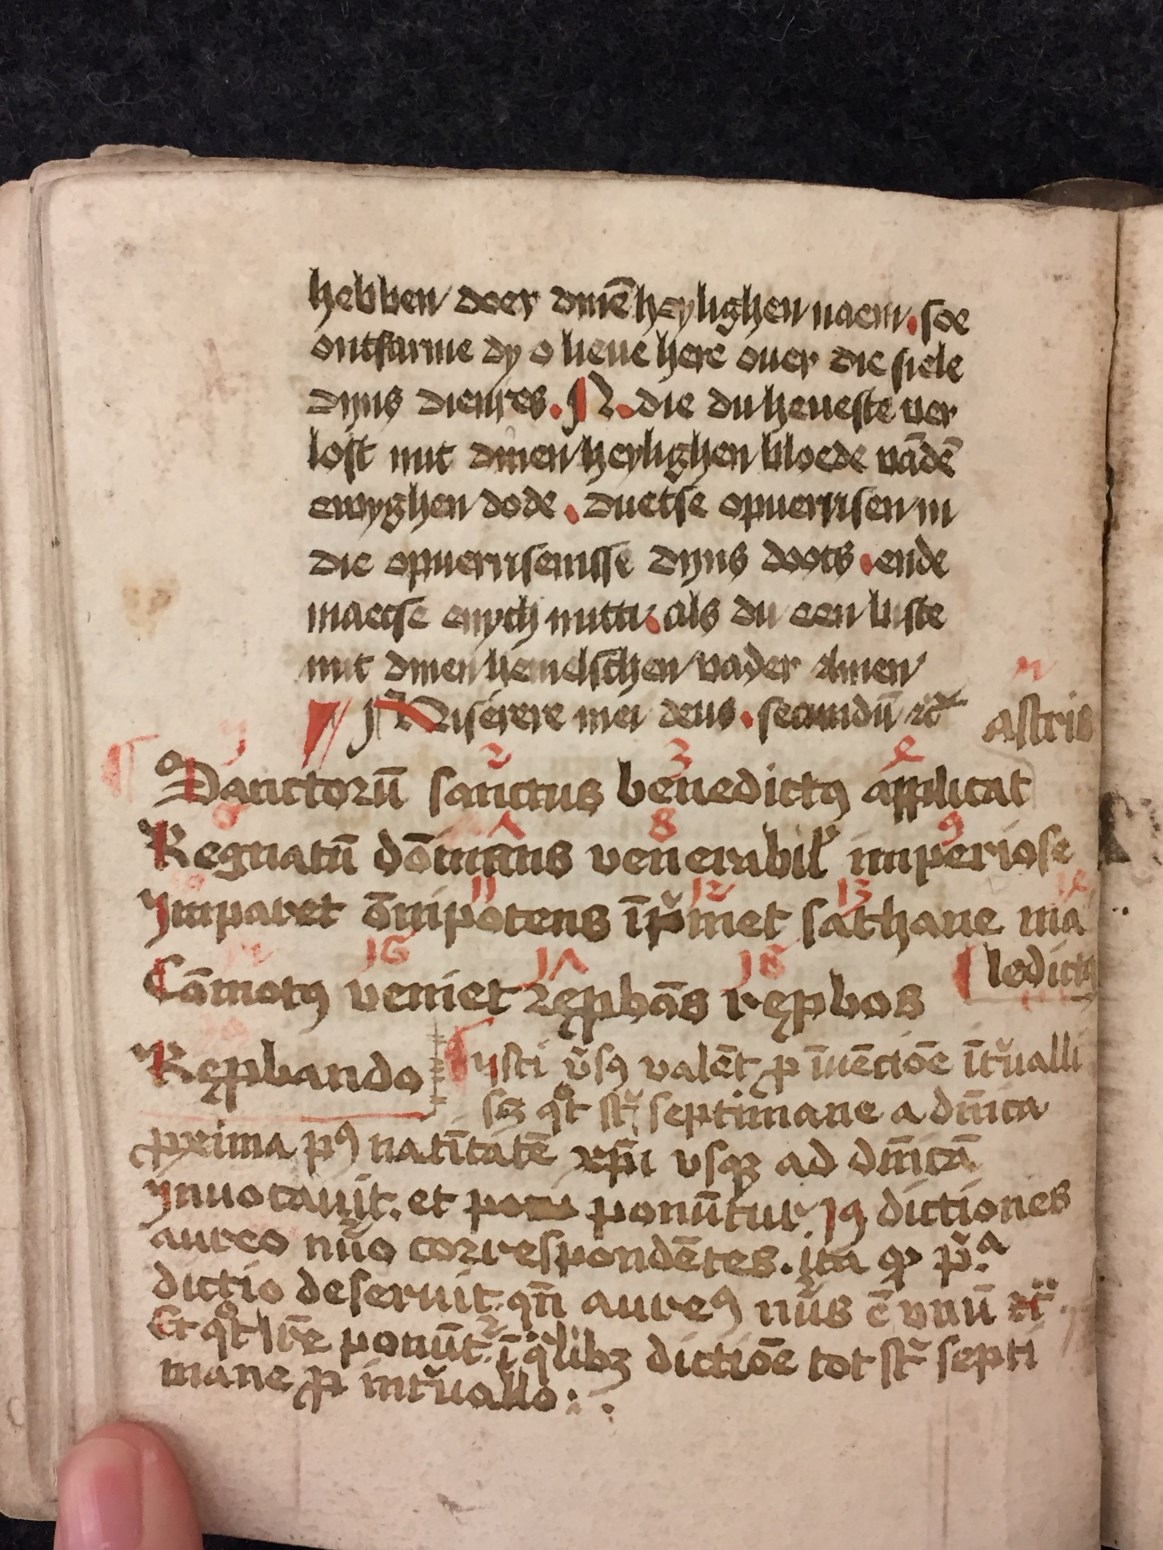 hebben doer dinē heylighen naem. soe
ontfarme dy o lieue here ouer die siele
dyns dienres. N. die du heueste ver
lost mit dinen heylighen bloede vādē
ewyghen dode. duetse opuerrisen in
die opuerrisenisse dyns doots. ende
maecse ewych mitti. als du een biste
mit dinen hemelschen vader amen
Miserere mei deus. secundū
astris
Sanctorū sanctus benedictꝯ applicat
Regnatū dōminans venerabil imperiose
ymparet ōmipotens īp̄met sathane ma
ledictꝯ
Cāmotꝯ veniet rephās rephos
Rephando
Isti v̄sꝯ valēt ꝑ īuēciōe īt̄ualli
sꝫ qͦt st̄ septimane a dn̄ica
ꝓxima pꝯ natītatē xp̄i vsqꝫ ad dn̄icā
ynuocauit. et ponūtur 19 dictiones
aureo nūo correspondētes. ita ꝙ p̄ᵃ
dictio deseruit qn̄ aureꝯ nūs ē vnū
Et qͦt lr̄e ponūt ī qͣlibꝫ dictiōe tot st̄ septi
mane ꝑ int̄uallo